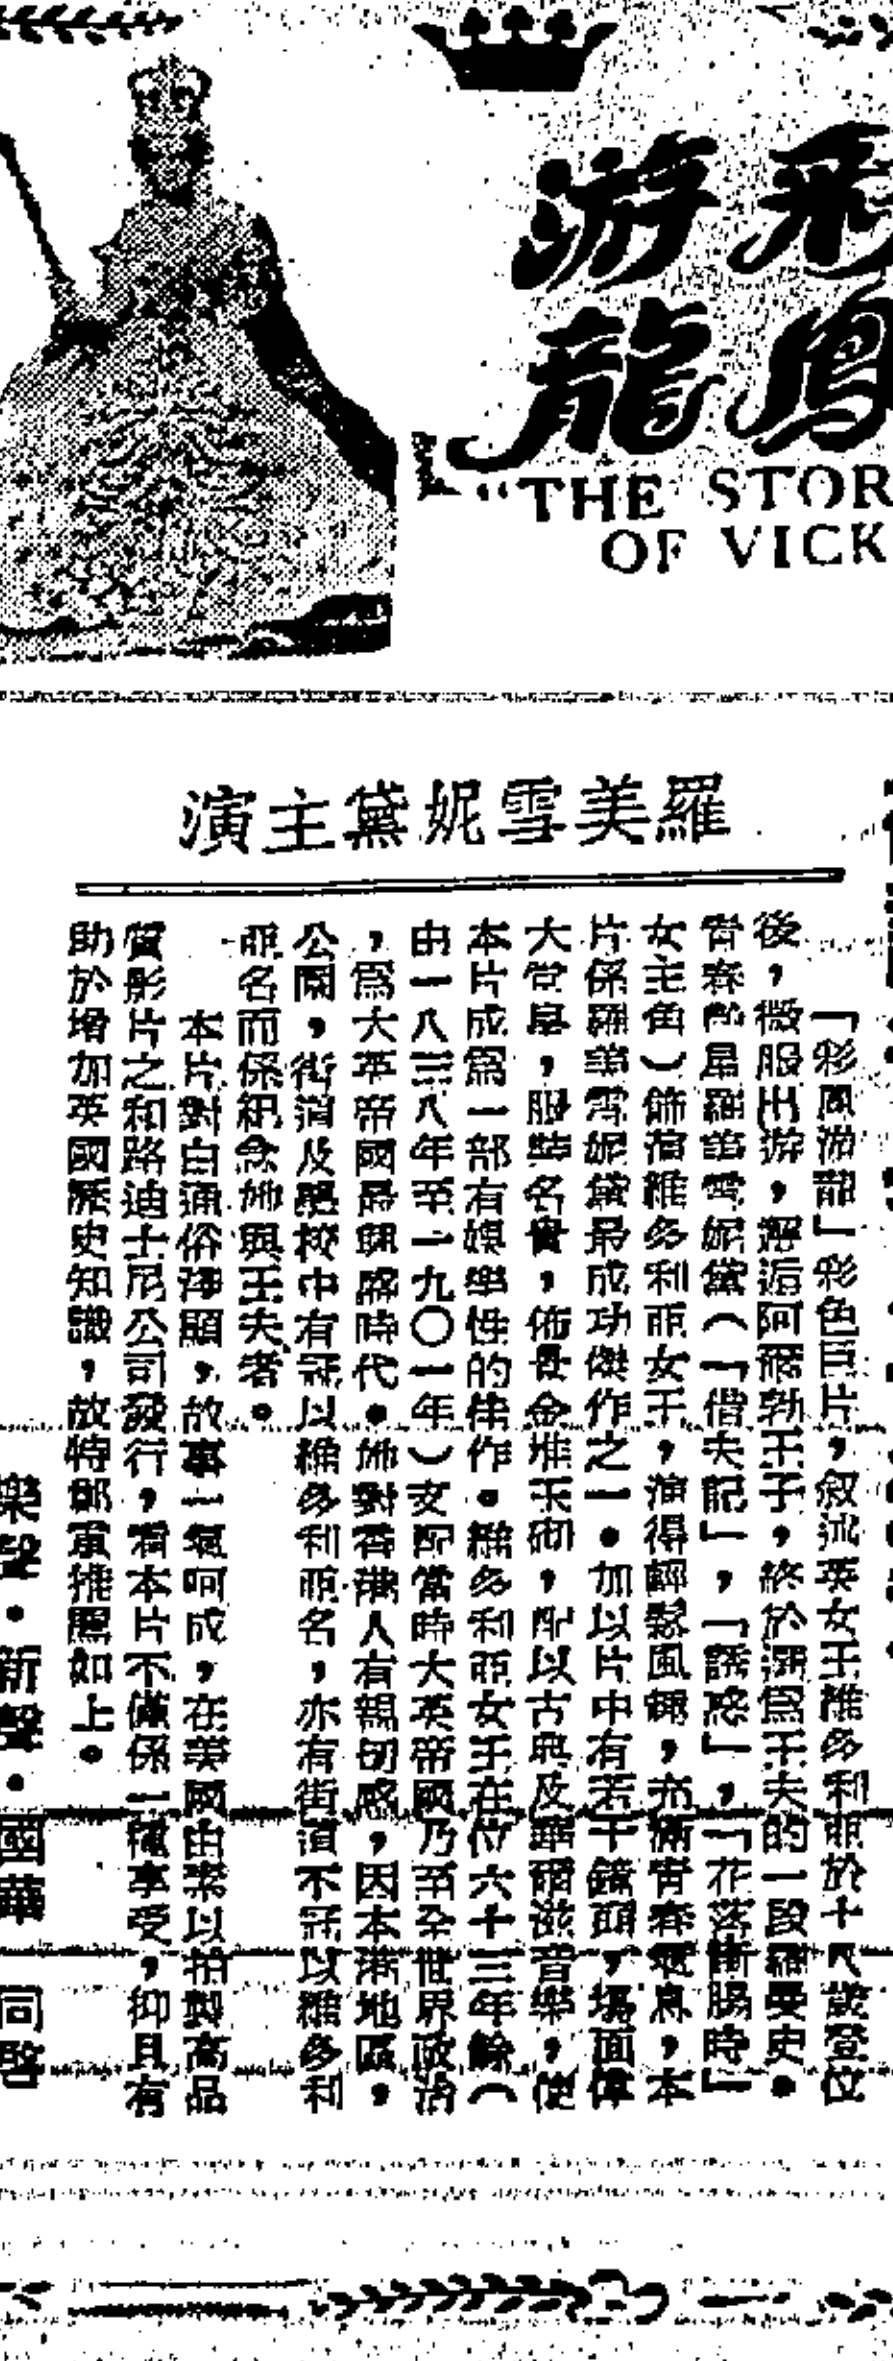 彩鳳
游龍
"THE STOR
OF VICK
羅美雪妮黛主演
「彩鳳游龍」彩色巨片，叙述英女王維多利亞於十八歲登位
後，微服出游，邂逅阿爾勃王子，終於選爲王夫的一段羅曼史。
青春艷星羅美雪妮黛（「借夫記」，「誘惑」，「花落斷腸時」
女主角）飾演維多利亞女王，演得輕鬆風趣，充滿青春氣息，本
片係羅美雪妮黛最成功傑作之一。加以片中有若干鏡頭，塲面偉
大堂皇，服裝名貴，佈景金堆玉砌，配以古典及華爾滋音樂，使
本片成爲一部有娛樂性的佳作。維多利亞女王在位六十三年餘（
由一八三八年至一九〇一年）支配當時大英帝國乃至全世界政治
，爲大英帝國最興盛時代。她對香港人有親切感，因本港地區，
公園，街道及學校中有冠以維多利亞名，亦有街道不冠以維多利
亞名而係紀念她與王夫者。
本片對白通俗淺顯，故事一氣呵成，在美國由素以拍製高品
質影片之和路迪士尼公司發行，看本片不僅係一種享受，抑且有
助於增加英國歷史知識，故特鄭重推薦如上。
樂聲・新聲・國華 同啓